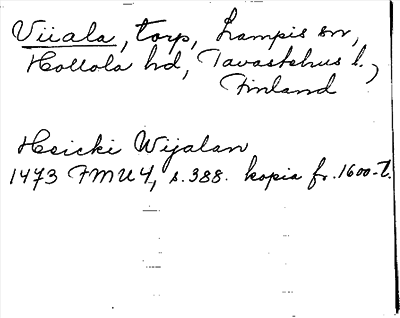 Viiala, torp, Lampis sn,
Hollola hd, Tavastehus l.,
Finland
Heicki Wijalan
1473 FMU 4, s.388. kopia fr. 1600-t.